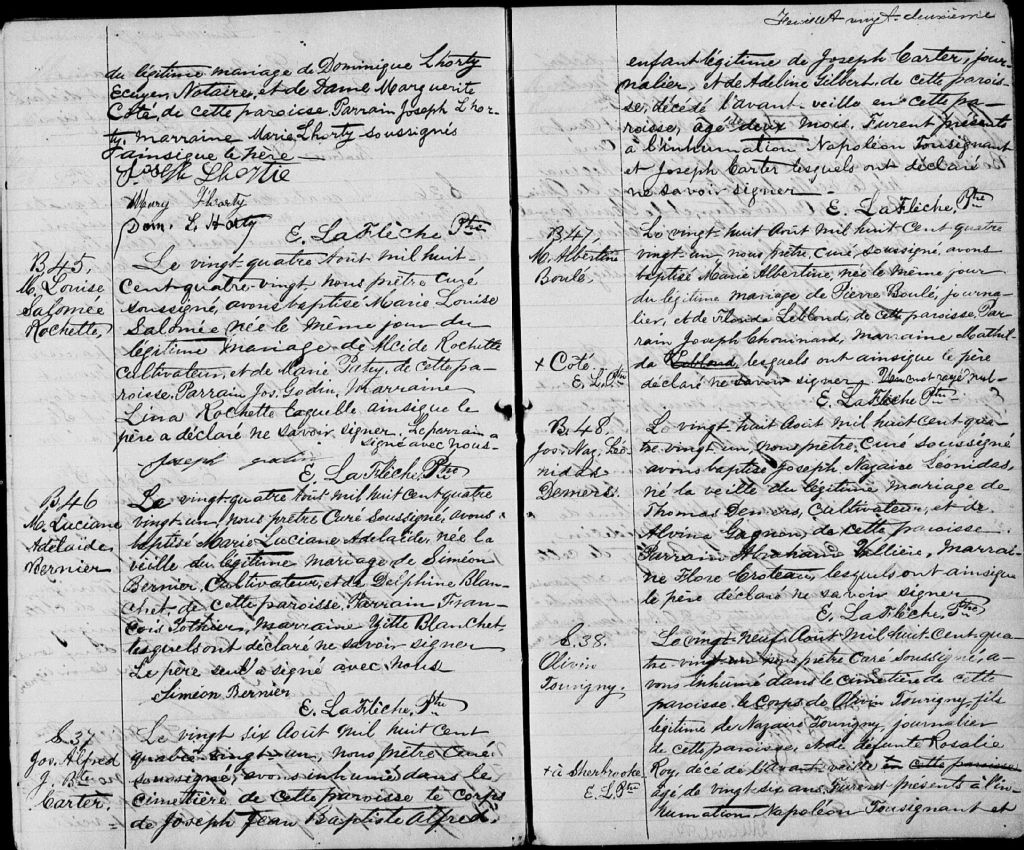 du légitime mariage de Dominique Lhorty
Ecuyer, Notaire, et de Dame Marguerite
Côté, de cette paroisse Parrain Joseph Lhor-
ty, marraine Marie Lhorty soussignés
ainsi que le père
Joseph Lhortie
Mary Lhorty
Dom. L. Horty
E. LaFlèche, Ptre
B 45.
M. Louise
Salomée
Rochette,
Le vingt-quatre Aout mil huit-
cent-quatre-vingt nous prêtre Curé
soussigné, avons baptisé Marie Louise
Salomée née le même jour du
légitime mariage de Alcide Rochette
Cultivateur, et de Marie Patry, de cette pa-
roisse, Parrain Jos. Godin, Marraine
Lina Rochette laquelle ainsi que le
père a déclaré ne savoir signer. Le parrain a
signé avec nous
Joseph godin
E. LaFlèche, Ptre
B 46
M. Luciane
Adelaïde
Bernier
Le vingt-quatre Aout mil huit cent quatre
vingt-un, nous prêtre Curé soussigné, avons
baptisé Marie Luciane Adelaïde, née la
veille du légitime mariage de Siméon
Bernier, Cultivateur, et de Delphine Blan-
chet de cette paroisse, Parrain Fran-
cois Pothier, marraine Yette Blanchet,
lesquels ont déclaré ne savoir signer
Le père seul a signé avec nous
Siméon Bernier
E. LaFlèche, Ptre
S 37
Jos. Alfred
J. Bte
Carter.
Le vingt six Aout mil huit Cent
quatre-vingt-un, nous prêtre Curé
soussigné, avons inhumé dans le
cimetière de cette paroisse le corps
de Joseph Jean Baptiste Alfred.
Feuillet vingt-deuxième
enfant légitime de Joseph Carter, jour-
nalier, et de Adeline Gilbert, de cette parois-
se, décédé l'avant-veille en cette pa-
roisse, âgé de deux mois. Furent présents
à l'inhumation Napoléon Tousignant
et Joseph Carter lesquels ont déclaré
ne savoir signer
E. LaFlèche, Ptre
B 47,
M. Albertine
Boulé,
Le vingt-huit Aout mil huit Cent quatre
vingt-un, nous prêtre, Curé soussigné, avons
baptisé Marie Albertine, née le même jour
du légitime mariage de Pierre Boulé, journa-
lier, et de Florida Leblond, de cette paroisse, Par-
rain Joseph Chouinard, marraine Mathil-
+ Côté
E. L. Ptre
da Leblond, lesquels ont ainsi que le père
déclaré ne savoir signer. Un mot rayé nul
E. LaFlèche Ptre
B. 48.
Jos. Naz. Léo
nidas
Demers.
Le vingt, huit Aout mil huit Cent qua-
tre-vingt, un, nous prêtre, Curé soussigné
avons baptisé Joseph Nazaire Léonidas,
né la veille du légitime mariage de
Thomas Demers, Cultivateur, et de
Alvina Gagnon, de cette paroisse.
Parrain Abraham Vallière, Marrai-
ne Flore Croteau, lesquels ont ainsi que
le père déclaré ne savoir signer
E. LaFlèche, Ptre
S. 38.
Olivin
Tourigny.
Le vingt-neuf Aout Mil huit Cent-qua-
tre-vingt-un nous prêtre Curé soussigné, a-
vons inhumé dans le Cimetière de cette
paroisse le Corps de Olivin Tourigny, fils
légitime de Nazaire Tourigny journalier
de cette paroisse, et de défunte Rosalie
+ à Sherbrooke
E. L. Ptre
Roy, décédé l'avant-veille en cette paroisse
âgé de vingt six ans. Furent présents à l'in-
humation Napoléon Tousignant et